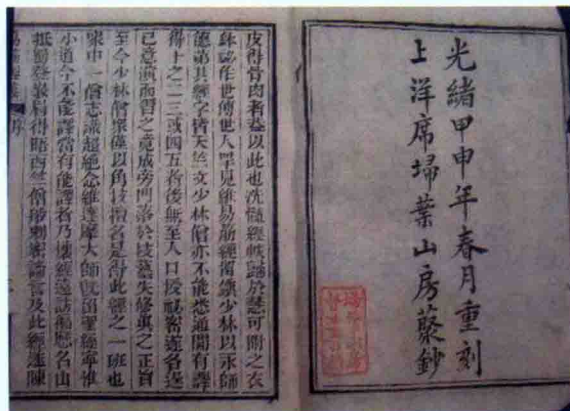 光緒甲申年春月重刻
上洋席埽葉山房藂鈔
皮得骨肉者盖以此也洗髓經帙歸於慧可附之衣
鉢祕作世傳世人罕見維易筋經留鎮少林以永師
德第其經字皆天竺文少林僧亦不能悉通間有譯
得十之二三或四五者後無至人口授祕密遂各逞
己意演而習之竟成旁門落於技藝失修真之正旨
至今少林僧衆僅以角技擅名是得此經之一班也
衆中一僧志識超絕念維達摩大師既留聖經寧惟
小道今不能譯當有能譯者乃懷經遠訪徧歷名山
抵蜀登峩眉得晤西竺僧般剌密諦言及此經並陳
易筋經義 序